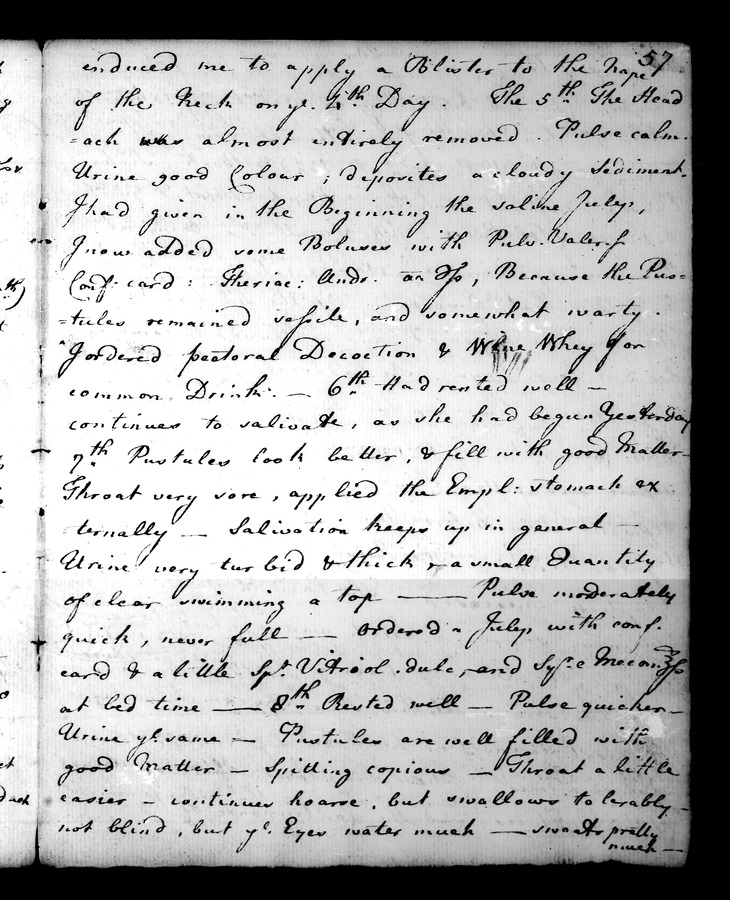 57
enduced me to apply a Blister to the Nape
of the Neck on ye. 4th Day. The 5th The Head
=ach was almost entirely removed. Pulse calm.
Urine good Colour; deposites a cloudy Sediment.
I had given in the Beginning the saline Julep,
I now added some Boluses with Pulv. Valer. ʃ
Conf: card: Theriac: Andr. aa ℈ʃs, Because the Pus=
=tules remained sessile, and somewhat warty.
I ordered pectoral Decoction & Wine Whey for
common Drink. — 6th Had rested well —
continues to salivate, as she had begun Yesterday
7th Pustules look better, & fill with good Matter
Throat very sore, applied the Empl: stomach ex
=ternally — Salivation keeps up in general —
Urine very turbid & thick & a small Quantity
of clear swimming a top — Pulse moderately
quick, never full — Ordered a Julep with conf.
card & a little Spt. Vitriol. dulc, and Syr: e Mecon: ℥ʃs
at bed time — 8th Rested well — Pulse quicker —
Urine ye. same — Pustules are well filled with
good Matter — Spitting copious — Throat a little
easier — continues hoarse, but swallows tolerably —
not blind, but ye. Eyes water much — sweats pretty
much —